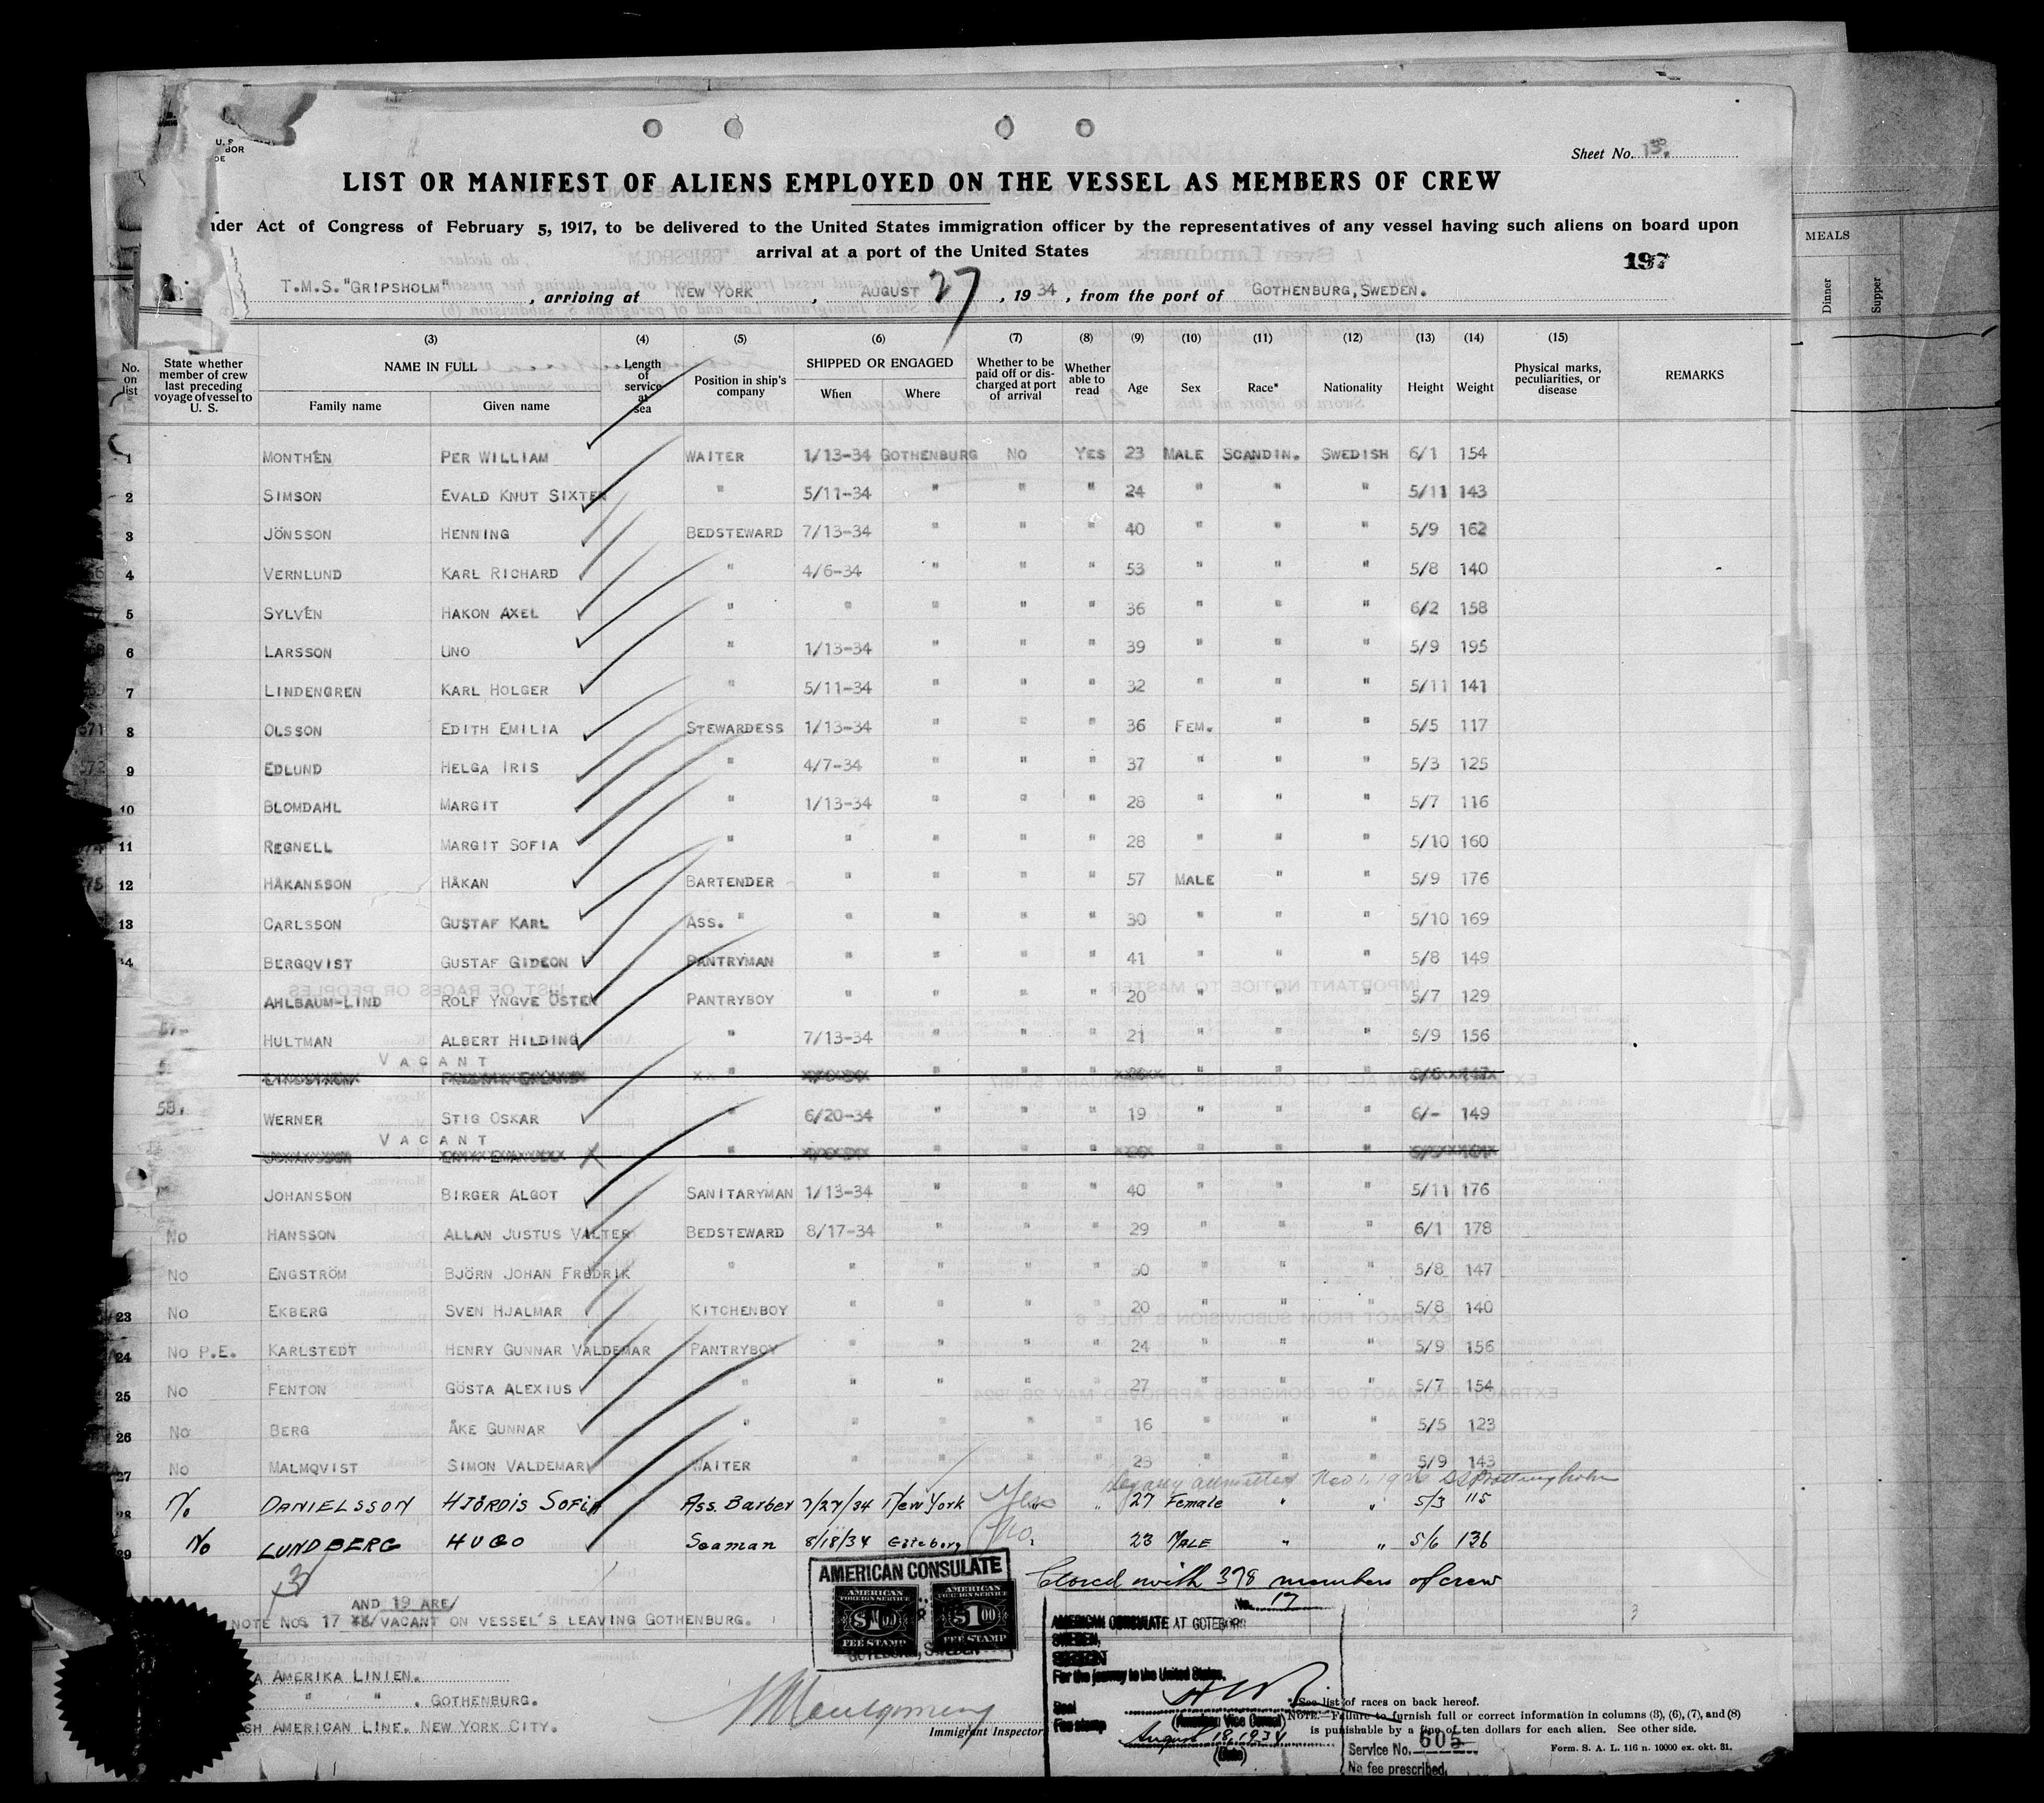 U. S.
BOR
Sheet No. 13.
LIST OR MANIFEST OF ALIENS EMPLOYED ON THE VESSEL AS MEMBERS OF CREW
nder Act of Congress of February 5, 1917, to be delivered to the United States immigration officer by the representatives of any vessel having such aliens on board upon
arrival at a port of the United States
197
T.M.S. "GRIPSHOLM", arriving at NEW YORK, AUGUST 27, 1934, from the port of GOTHENBURG, SWEDEN.
MEALS
Dinner
Supper
No. on list
State whether member of crew last preceding voyage of vessel to U. S.
(3) NAME IN FULL
Family name
Given name
(4) Length of service at sea
(5) Position in ship's company
(6) SHIPPED OR ENGAGED
When
Where
(7) Whether to be paid off or discharged at port of arrival
(8) Whether able to read
(9) Age
(10) Sex
(11) Race*
(12) Nationality
(13) Height
(14) Weight
(15) Physical marks, peculiarities, or disease
REMARKS
1 MONTHÉN PER WILLIAM WAITER 1/13-34 GOTHENBURG NO YES 23 MALE SCANDIN. SWEDISH 6/1 154
2 SIMSON EVALD KNUT SIXTEN " 5/11-34 " " " 24 " " " 5/11 143
3 JÖNSSON HENNING BEDSTEWARD 7/13-34 " " " 40 " " " 5/9 162
4 VERNLUND KARL RICHARD " 4/6-34 " " " 53 " " " 5/8 140
5 SYLVÉN HAKON AXEL " " " " " 36 " " " 6/2 158
6 LARSSON UNO " 1/13-34 " " " 39 " " " 5/9 195
7 LINDENGREN KARL HOLGER " 5/11-34 " " " 32 " " " 5/11 141
8 OLSSON EDITH EMILIA STEWARDESS 1/13-34 " " " 36 FEM. " " 5/5 117
9 EDLUND HELGA IRIS " 4/7-34 " " " 37 " " " 5/3 125
10 BLOMDAHL MARGIT " 1/13-34 " " " 28 " " " 5/7 116
11 REGNELL MARGIT SOFIA " " " " " 28 " " " 5/10 160
12 HÅKANSSON HÅKAN BARTENDER " " " " 57 MALE " " 5/9 176
13 CARLSSON GUSTAF KARL ASS. " " " " " 30 " " " 5/10 169
14 BERGQVIST GUSTAF GIDEON PANTRYMAN " " " " 41 " " " 5/8 149
AHLBAUM-LIND ROLF YNGVE ÖSTEN PANTRYBOY " " " " 20 " " " 5/7 129
HULTMAN ALBERT HILDING " 7/13-34 " " " 21 " " " 5/9 156
VACANT
WERNER STIG OSKAR " 6/20-34 " " " 19 " " " 6/- 149
VACANT
JOHANSSON BIRGER ALGOT SANITARYMAN 1/13-34 " " " 40 " " " 5/11 176
NO HANSSON ALLAN JUSTUS VALTER BEDSTEWARD 8/17-34 " " " 29 " " " 6/1 178
NO ENGSTRÖM BJÖRN JOHAN FREDRIK " " " " " 30 " " " 5/8 147
23 NO EKBERG SVEN HJALMAR KITCHENBOY " " " " 20 " " " 5/8 140
24 NO P.E. KARLSTEDT HENRY GUNNAR VALDEMAR PANTRYBOY " " " " 24 " " " 5/9 156
25 NO FENTON GÖSTA ALEXIUS " " " " " 27 " " " 5/7 154
26 NO BERG ÅKE GUNNAR " " " " " 16 " " " 5/5 123
27 NO MALMQVIST SIMON VALDEMAR WAITER " " " " 23 " " " 5/9 143
Legally admitted Nov 1, 1926 SS Drottningholm
28 No DANIELSSON HJÖRDIS SOFIA Ass. Barber 7/27/34 New York Yes " 27 Female " " 5/3 115
29 No LUNDBERG HUGO Seaman 8/18/34 Göteborg No. 23 MALE " " 5/6 136
Closed with 378 members of crew
AND 19 ARE/
NOTE NOS 17 VACANT ON VESSEL'S LEAVING GOTHENBURG.
AMERICAN CONSULATE
AMERICAN FOREIGN SERVICE $1.00 FEE STAMP
AMERICAN FOREIGN SERVICE $1.00 FEE STAMP
GOTEBORG, SWEDEN
No. 17
AMERICAN CONSULATE AT GOTEBORG
SWEDEN,
For the journey to the United States.
Seal
Fee stamp
(American Vice Consul)
August 18, 1934
(Date)
Service No. 605
No fee prescribed.
A AMERIKA LINIEN.
" " . GOTHENBURG.
SH AMERICAN LINE. NEW YORK CITY.
Montgomery
Immigrant Inspector
* See list of races on back hereof.
NOTE.—Failure to furnish full or correct information in columns (3), (6), (7), and (8)
is punishable by a fine of ten dollars for each alien. See other side.
Form. S. A. L. 116 n. 10000 ex. okt. 31.